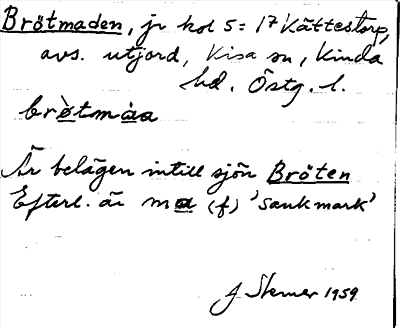 Brötmaden, jr kol 5 = 17 Kättestorp,
avs. utjord, Kisa sn, Kinda
hd. Östg. l.
brö̀tmàa
Är belägen intill sjön Bröten
Efterl. är ma (f) 'sankmark'
J Sterner 1959